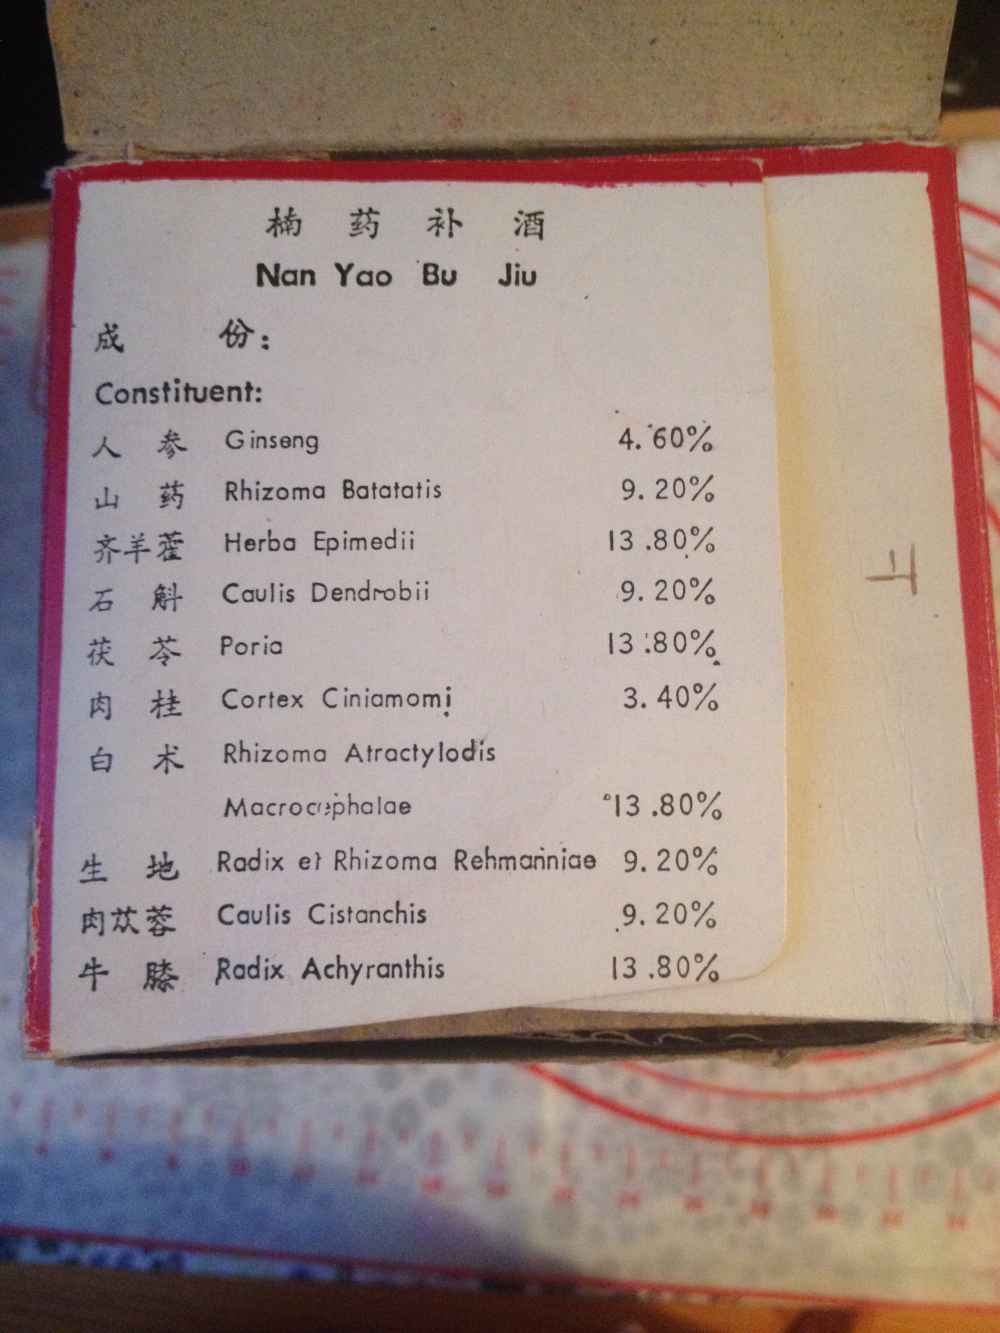 楠药补酒
Nan Yao Bu Jiu
成 份：
Constituent:
人 参 Ginseng 4.60%
山 药 Rhizoma Batatatis 9.20%
齐羊藿 Herba Epimedii 13.80%
石 斛 Caulis Dendrobii 9.20%
茯 苓 Poria 13.80%
肉 桂 Cortex Ciniamomi 3.40%
白 术 Rhizoma Atractylodis
Macrocephalae 13.80%
生 地 Radix et Rhizoma Rehmanniae 9.20%
肉苁蓉 Caulis Cistanchis 9.20%
牛 膝 Radix Achyranthis 13.80%